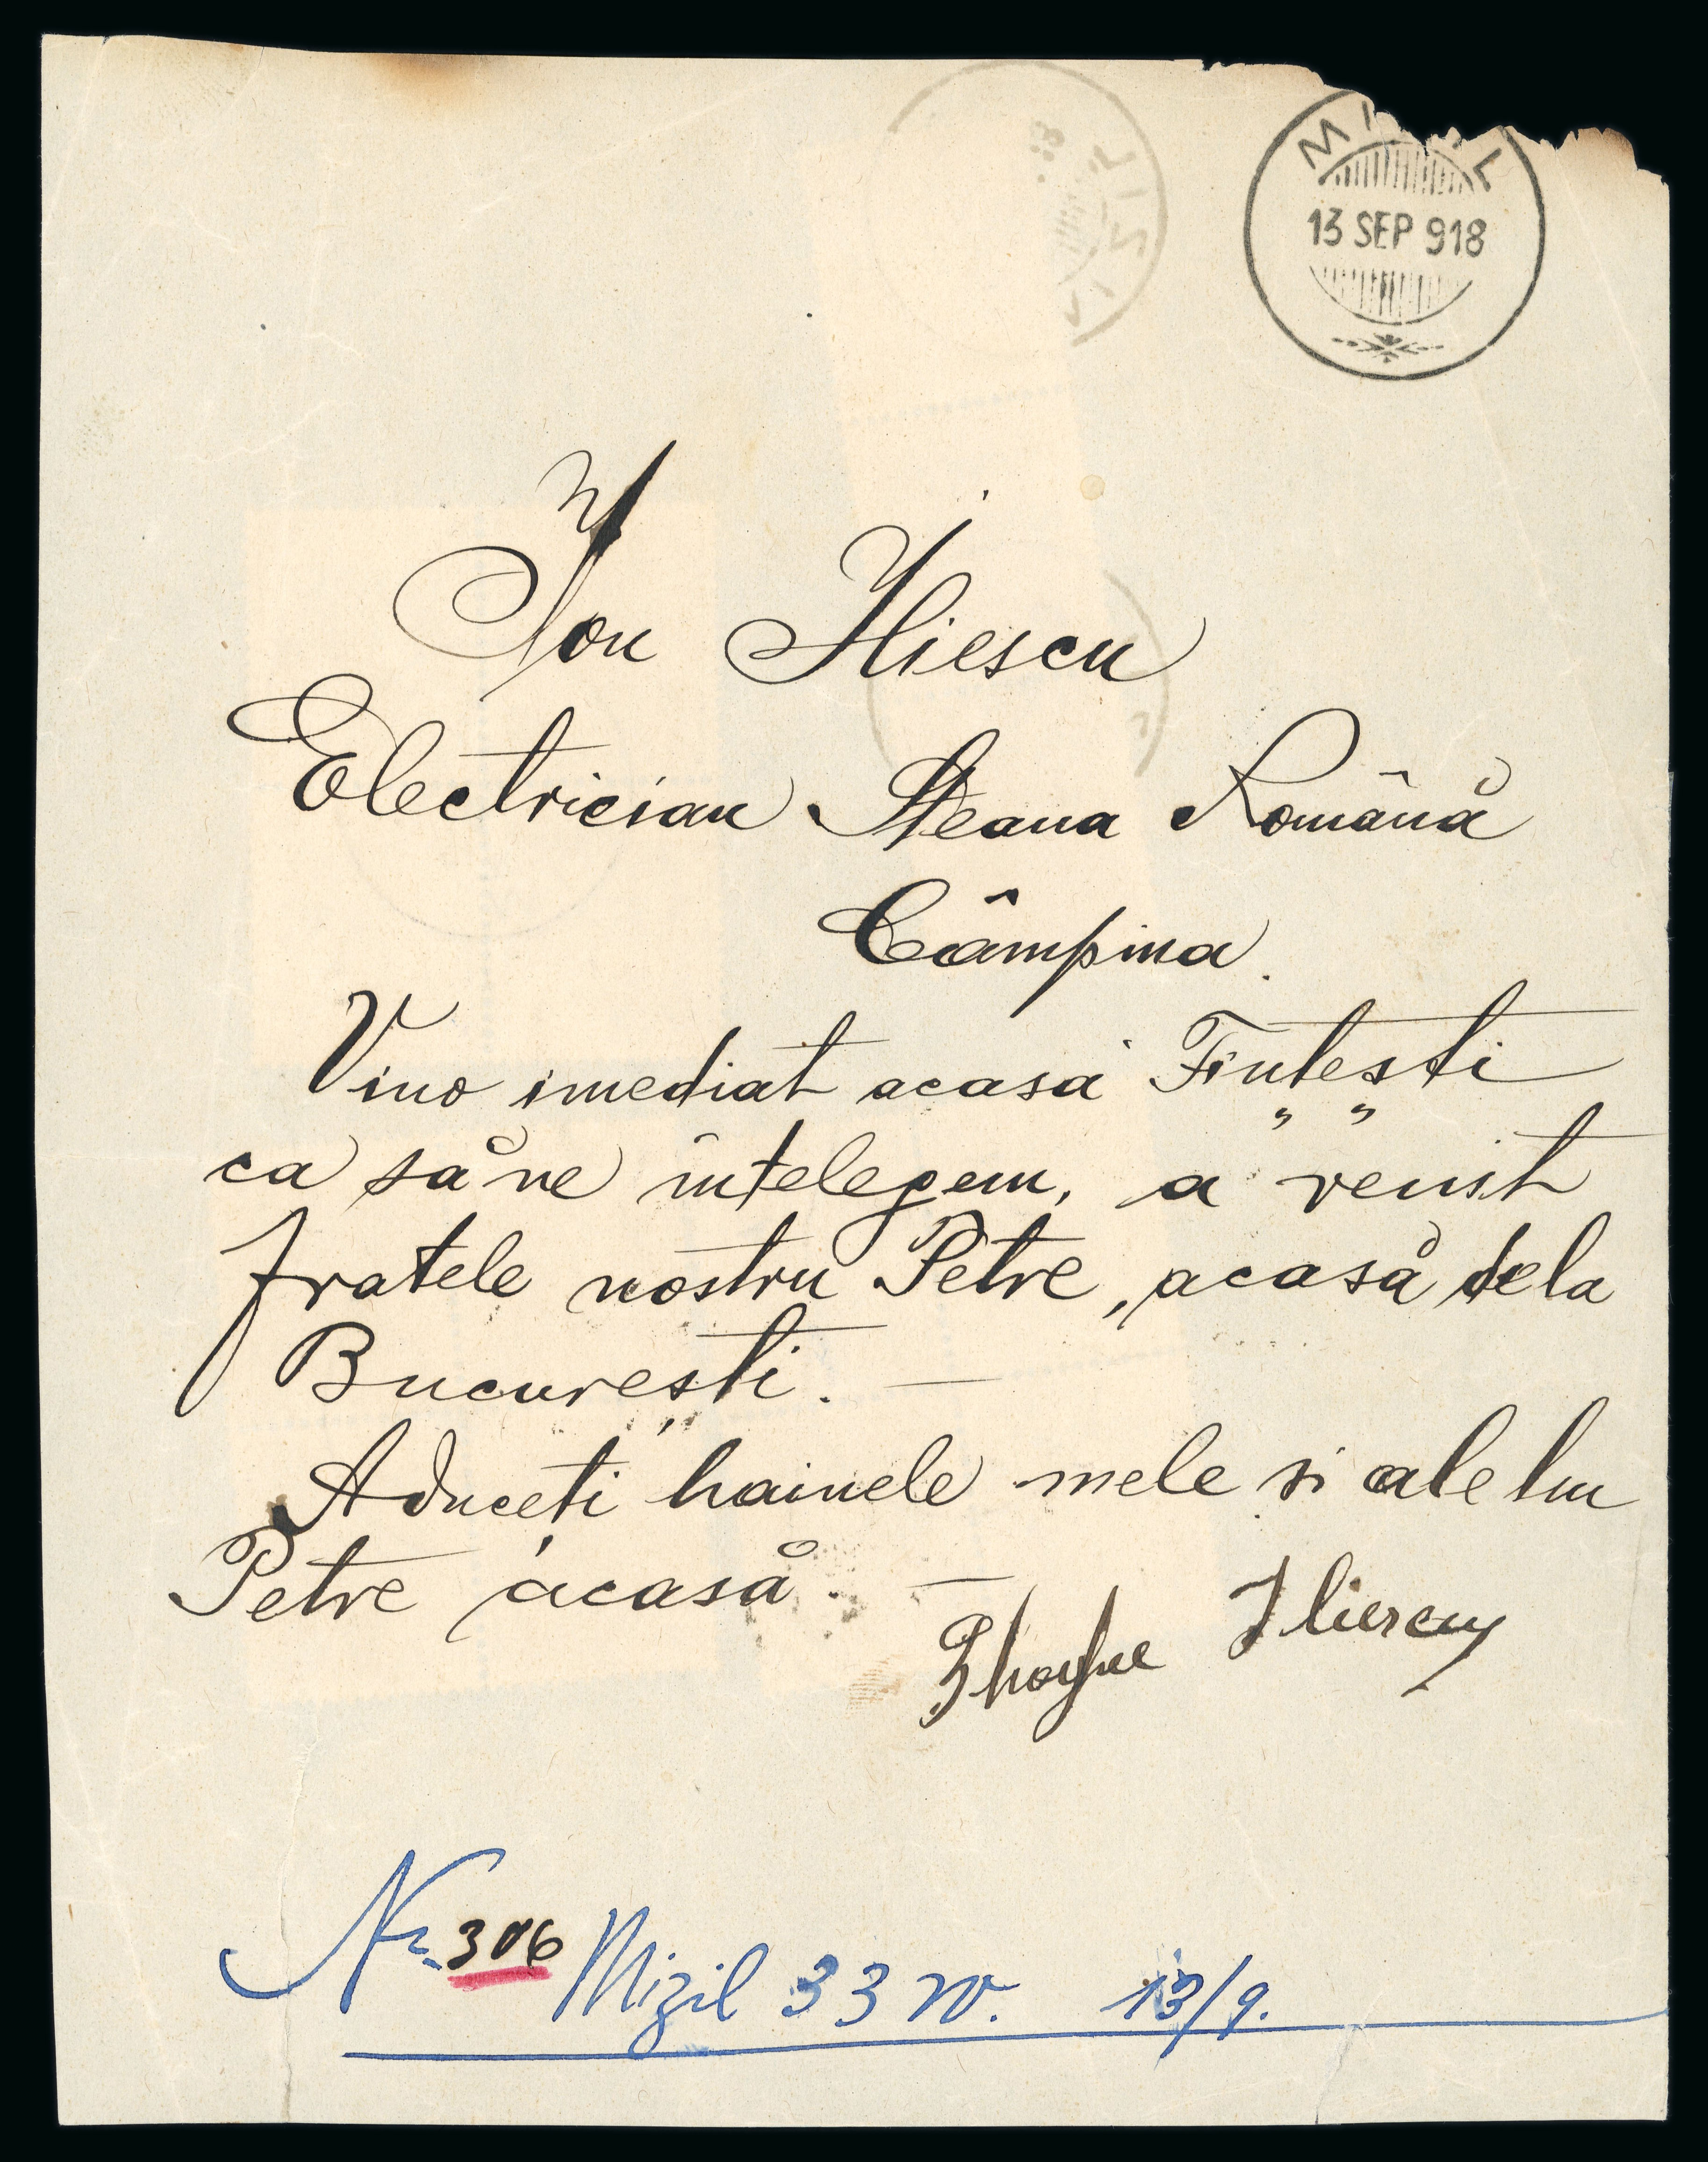 MIZIL
13 SEP 918
MIZIL
Ion Iliescu
Electrician Steaua Română
Câmpina.
Vino imediat acasă Fințești
ca să ne înțelegem, a venit
fratele nostru Petre, acasă dela
București. —
Aduceți hainele mele si ale lui
Petre acasă. —
Ghorghe Iliescu
Nr. 306 Mizil 33 w. 13/9.